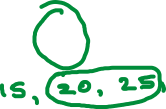 15, 20, 25,